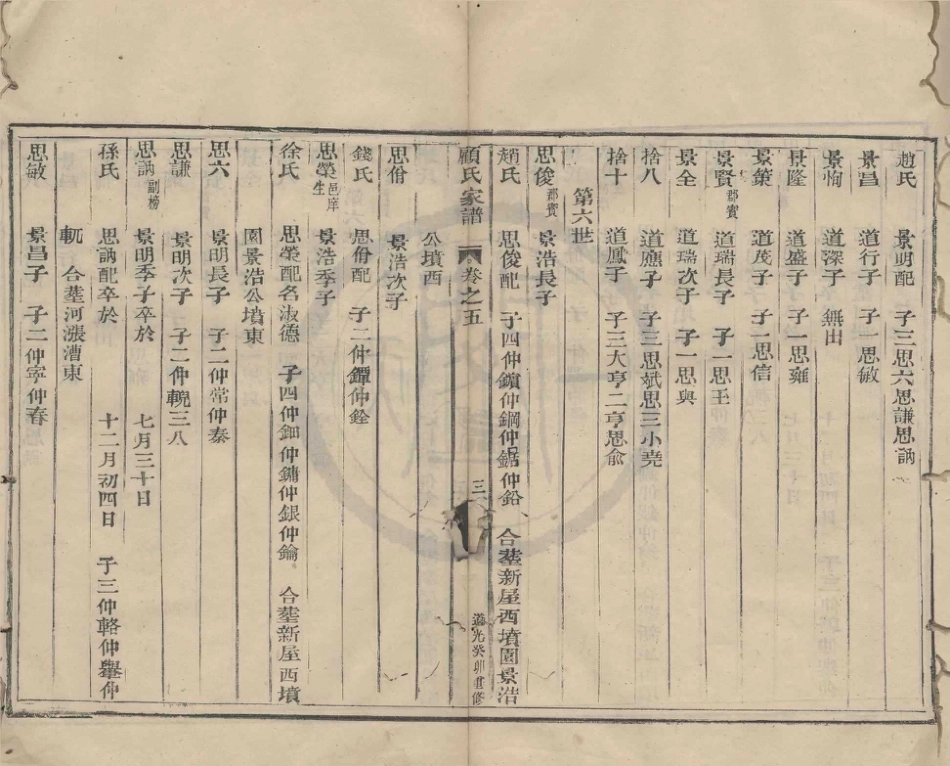 趙氏 景明配 子三思六思謙思訥
景昌 道行子 子一思敏
景恂 道深子 無出
景隆 道盛子 子一思雍
景榮 道茂子 子一思信
景賢郡賓 道瑞長子 子一思玉
景全 道瑞次子 子一思與
捨八 道應子 子三思斌思三小堯
捨十 道鳳子 子三大亨二亨思俞
第六世
思俊郡賓 景浩長子
趙氏 思俊配 子四仲鑌仲鋼仲鋸仲鉛 合塟新屋西墳園景浩
顧氏家譜 卷之五 三 道光癸卯重修
公墳西
思佾 景浩次子
錢氏 思佾配 子二仲鐔仲銓
思榮邑庠生 景浩季子
徐氏 思榮配名淑德 子四仲鈿仲鏞仲銀仲鑰 合塟新屋西墳
園景浩公墳東
思六 景明長子 子二仲常仲泰
思謙 景明次子 子二仲輗三八
思訥副榜 景明季子卒於 七月三十日
孫氏 思訥配卒於 十二月初四日 子三仲輅仲轝仲
軏 合塟河漲漕東
思敏 景昌子 子二仲寧仲春